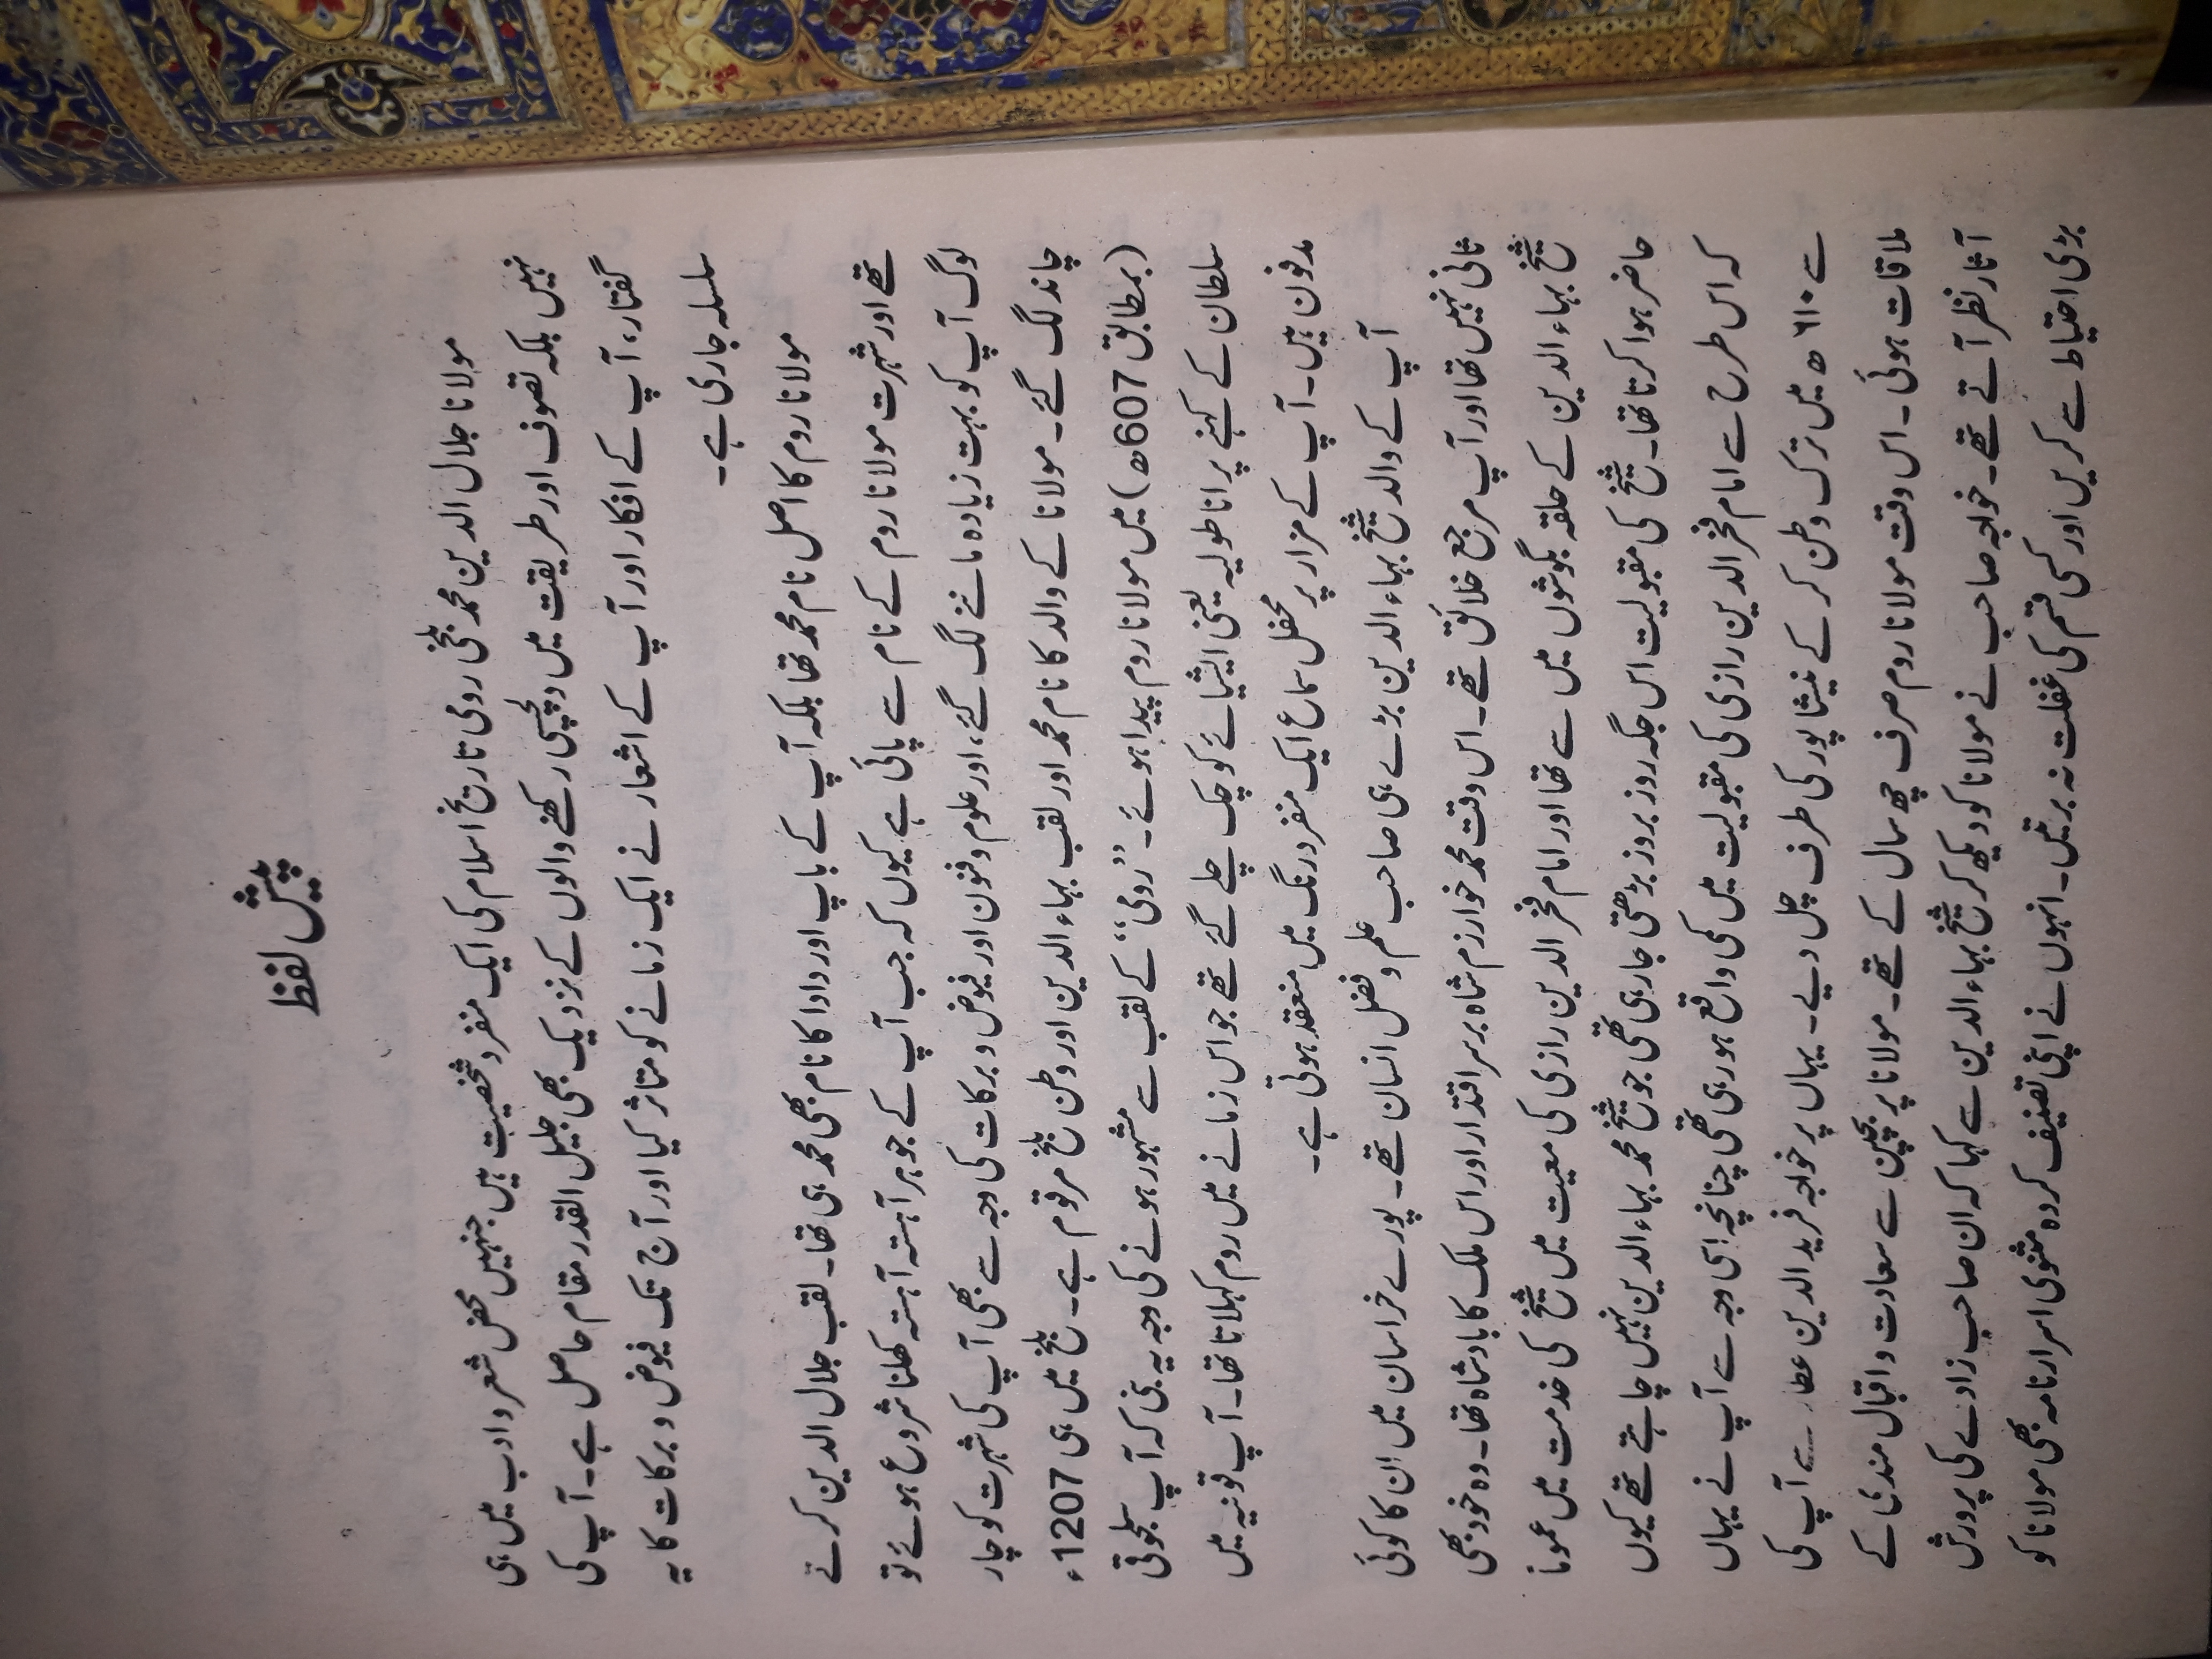 پیش لفظ
مولانا جلال الدین محمد بلخی رومی تاریخ اسلام کی ایک منفرد شخصیت ہیں جنہیں محض شعر و ادب میں ہی
نہیں بلکہ تصوف اور طریقت میں دلچسپی رکھنے والوں کے نزدیک بھی جلیل القدر مقام حاصل ہے۔ آپ کی
گفتار، آپ کے افکار اور آپ کے اشعار نے ایک زمانے کو متاثر کیا اور آج تک فیوض و برکات کا یہ
سلسلہ جاری ہے۔
مولانا روم کا اصل نام محمد تھا بلکہ آپ کے باپ اور دادا کا نام بھی محمد ہی تھا۔ لقب جلال الدین کرتے
تھے اور شہرت مولانا روم کے نام سے پائی ہے کیوں کہ جب آپ کے جوہر آہستہ آہستہ کھلنا شروع ہوئے تو
لوگ آپ کو بہت زیادہ ماننے لگ گئے، اور علوم و فنون اور فیوض و برکات کی وجہ سے بھی آپ کی شہرت کو چار
چاند لگ گئے۔ مولانا کے والد کا نام محمد اور لقب بہاء الدین اور وطن بلخ مرقوم ہے۔ بلخ میں ہی 1207ء
(بمطابق 607ھ) میں مولانا روم پیدا ہوئے۔ ”رومی“ کے لقب سے مشہور ہونے کی وجہ یہ بنی کہ آپ سلجوقی
سلطان کے کہنے پر اناطولیہ یعنی ایشیائے کوچک چلے گئے تھے جو اس زمانے میں روم کہلاتا تھا۔ آپ قونیہ میں
مدفون ہیں۔ آپ کے مزار پر محفل سماع ایک منفرد رنگ میں منعقد ہوتی ہے۔
آپ کے والد شیخ بہاء الدین بڑے ہی صاحب علم و فضل انسان تھے۔ پورے خراسان میں ان کا کوئی
ثانی نہیں تھا اور آپ مرجع خلائق تھے۔ اس وقت محمد خوارزم شاہ برسر اقتدار اور اس ملک کا بادشاہ تھا۔ وہ خود بھی
شیخ بہاء الدین کے حلقہ بگوشوں میں سے تھا اور امام فخر الدین رازی کی معیت میں شیخ کی خدمت میں عموماً
حاضر ہوا کرتا تھا۔ شیخ کی مقبولیت اس جگہ روز بروز بڑھتی جا رہی تھی جو شیخ محمد بہاء الدین نہیں چاہتے تھے کیوں
کہ اس طرح سے امام فخر الدین رازی کی مقبولیت میں کمی واقع ہو رہی تھی چنانچہ اسی وجہ سے آپ نے یہاں
سے ۶۱۰ھ میں ترک وطن کر کے نیشاپور کی طرف چل دیے۔ یہاں پر خواجہ فرید الدین عطار سے آپ کی
ملاقات ہوئی۔ اس وقت مولانا روم صرف چھ سال کے تھے۔ مولانا پر بچپن سے سعادت و اقبال مندی کے
آثار نظر آتے تھے۔ خواجہ صاحب نے مولانا کو دیکھ کر شیخ بہاء الدین سے کہا کہ ان صاحب زادے کی پرورش
بڑی احتیاط سے کریں اور کسی قسم کی غفلت نہ برتیں۔ انہوں نے اپنی تصنیف کردہ مثنوی اسرار نامہ بھی مولانا کو